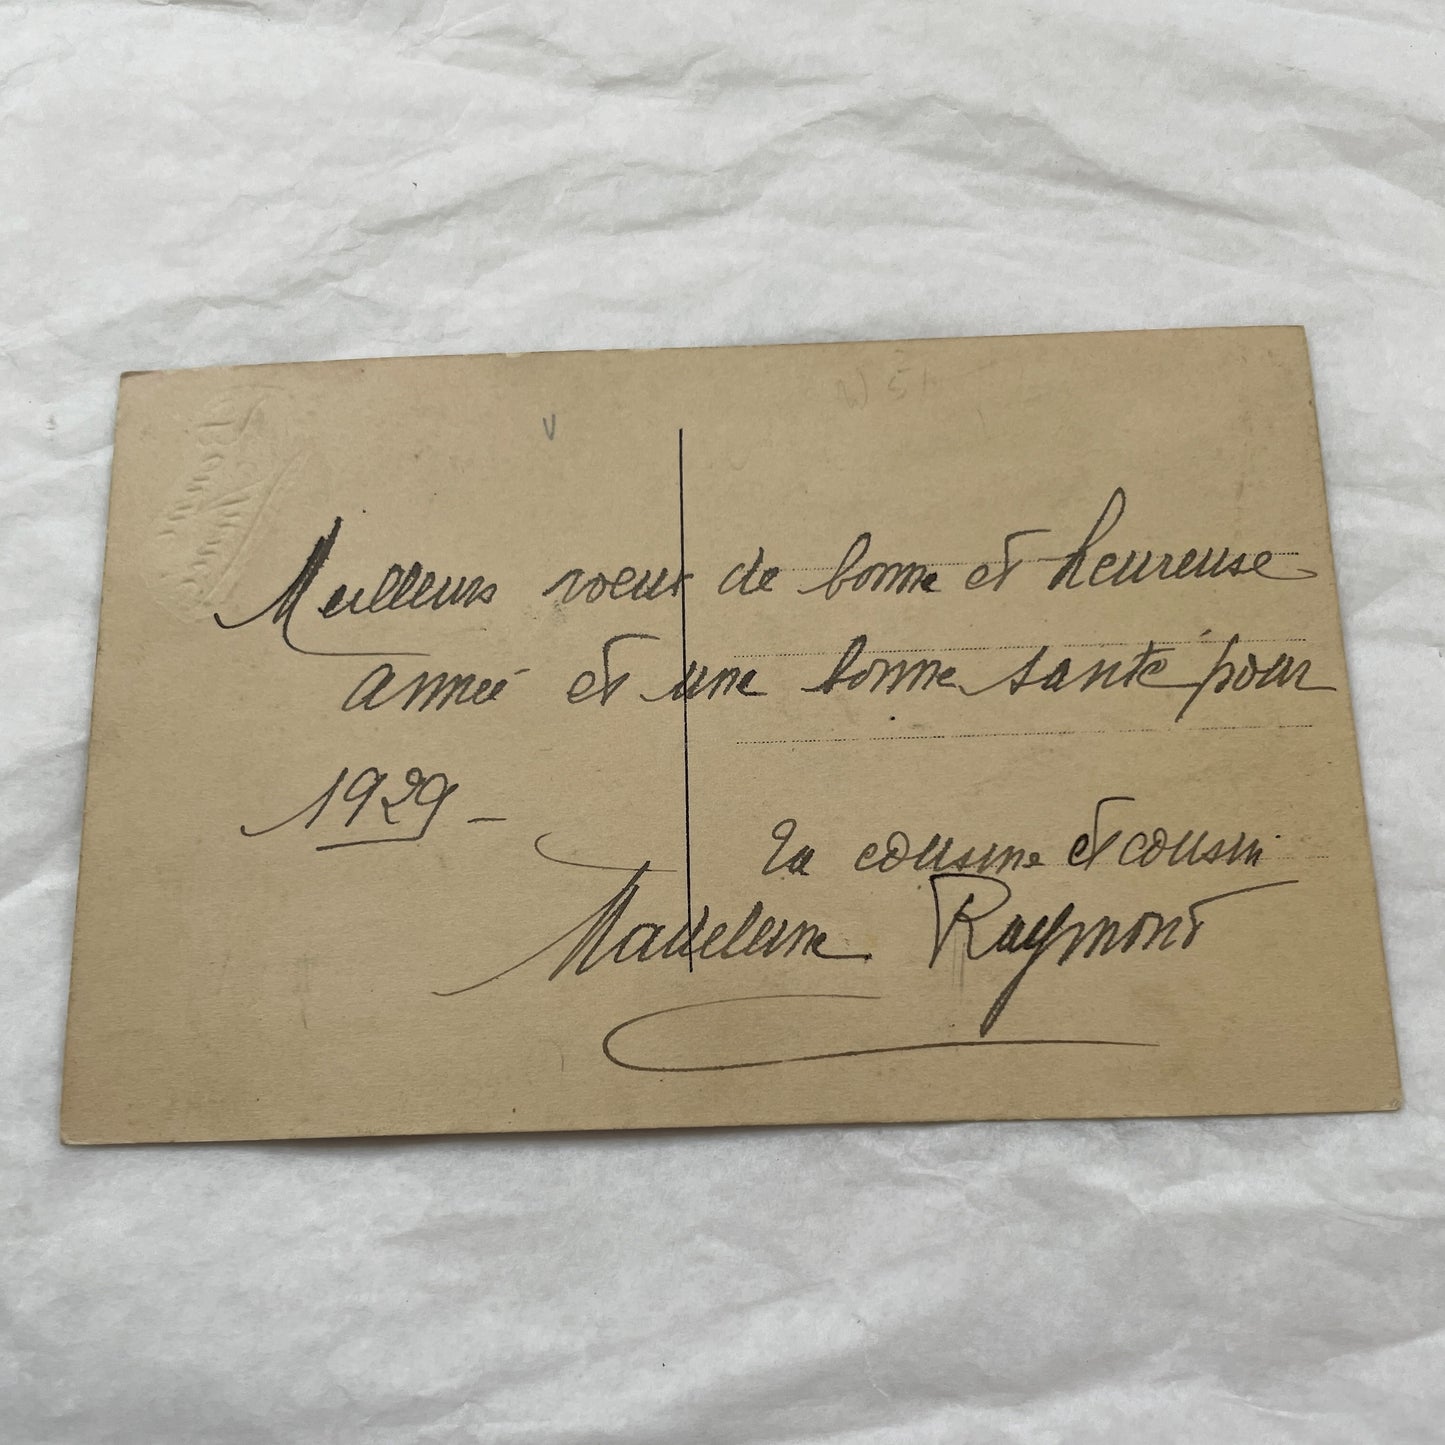 Bonne
Année
Meilleurs voeux de bonne et heureuse
année et une bonne santé pour
1929 -
ta cousine et cousin
Madeleine Raymond